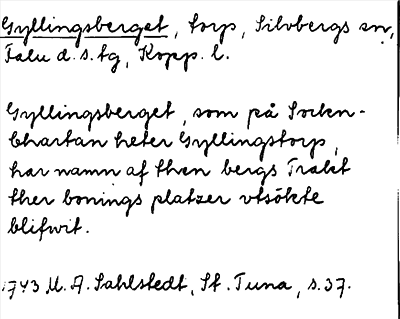 Gyllingsberget, torp, Silvbergs sn,
Falu d.s. tg, Kopp. l.
Gyllingsberget, som på Socken-
Chartan heter Gyllingstorp,
har namn af then bergs Trakt
ther bonings platzer utsökte
blifwit.
1743 U. A. Sahlstedt, St. Tuna, s. 37.